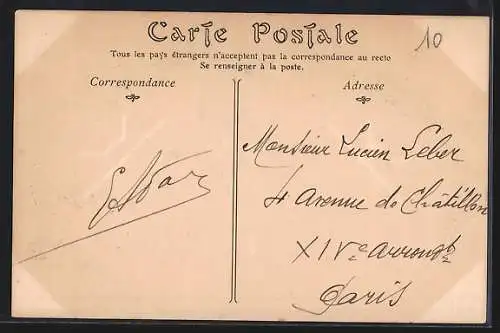 Carte Postale
10
Tous les pays étrangers n'acceptent pas la correspondance au recto
Se renseigner à la poste.
Correspondance
Adresse
Monsieur Lucien Leber
4 Avenue de Châtillon
XIVe arrondt
Paris